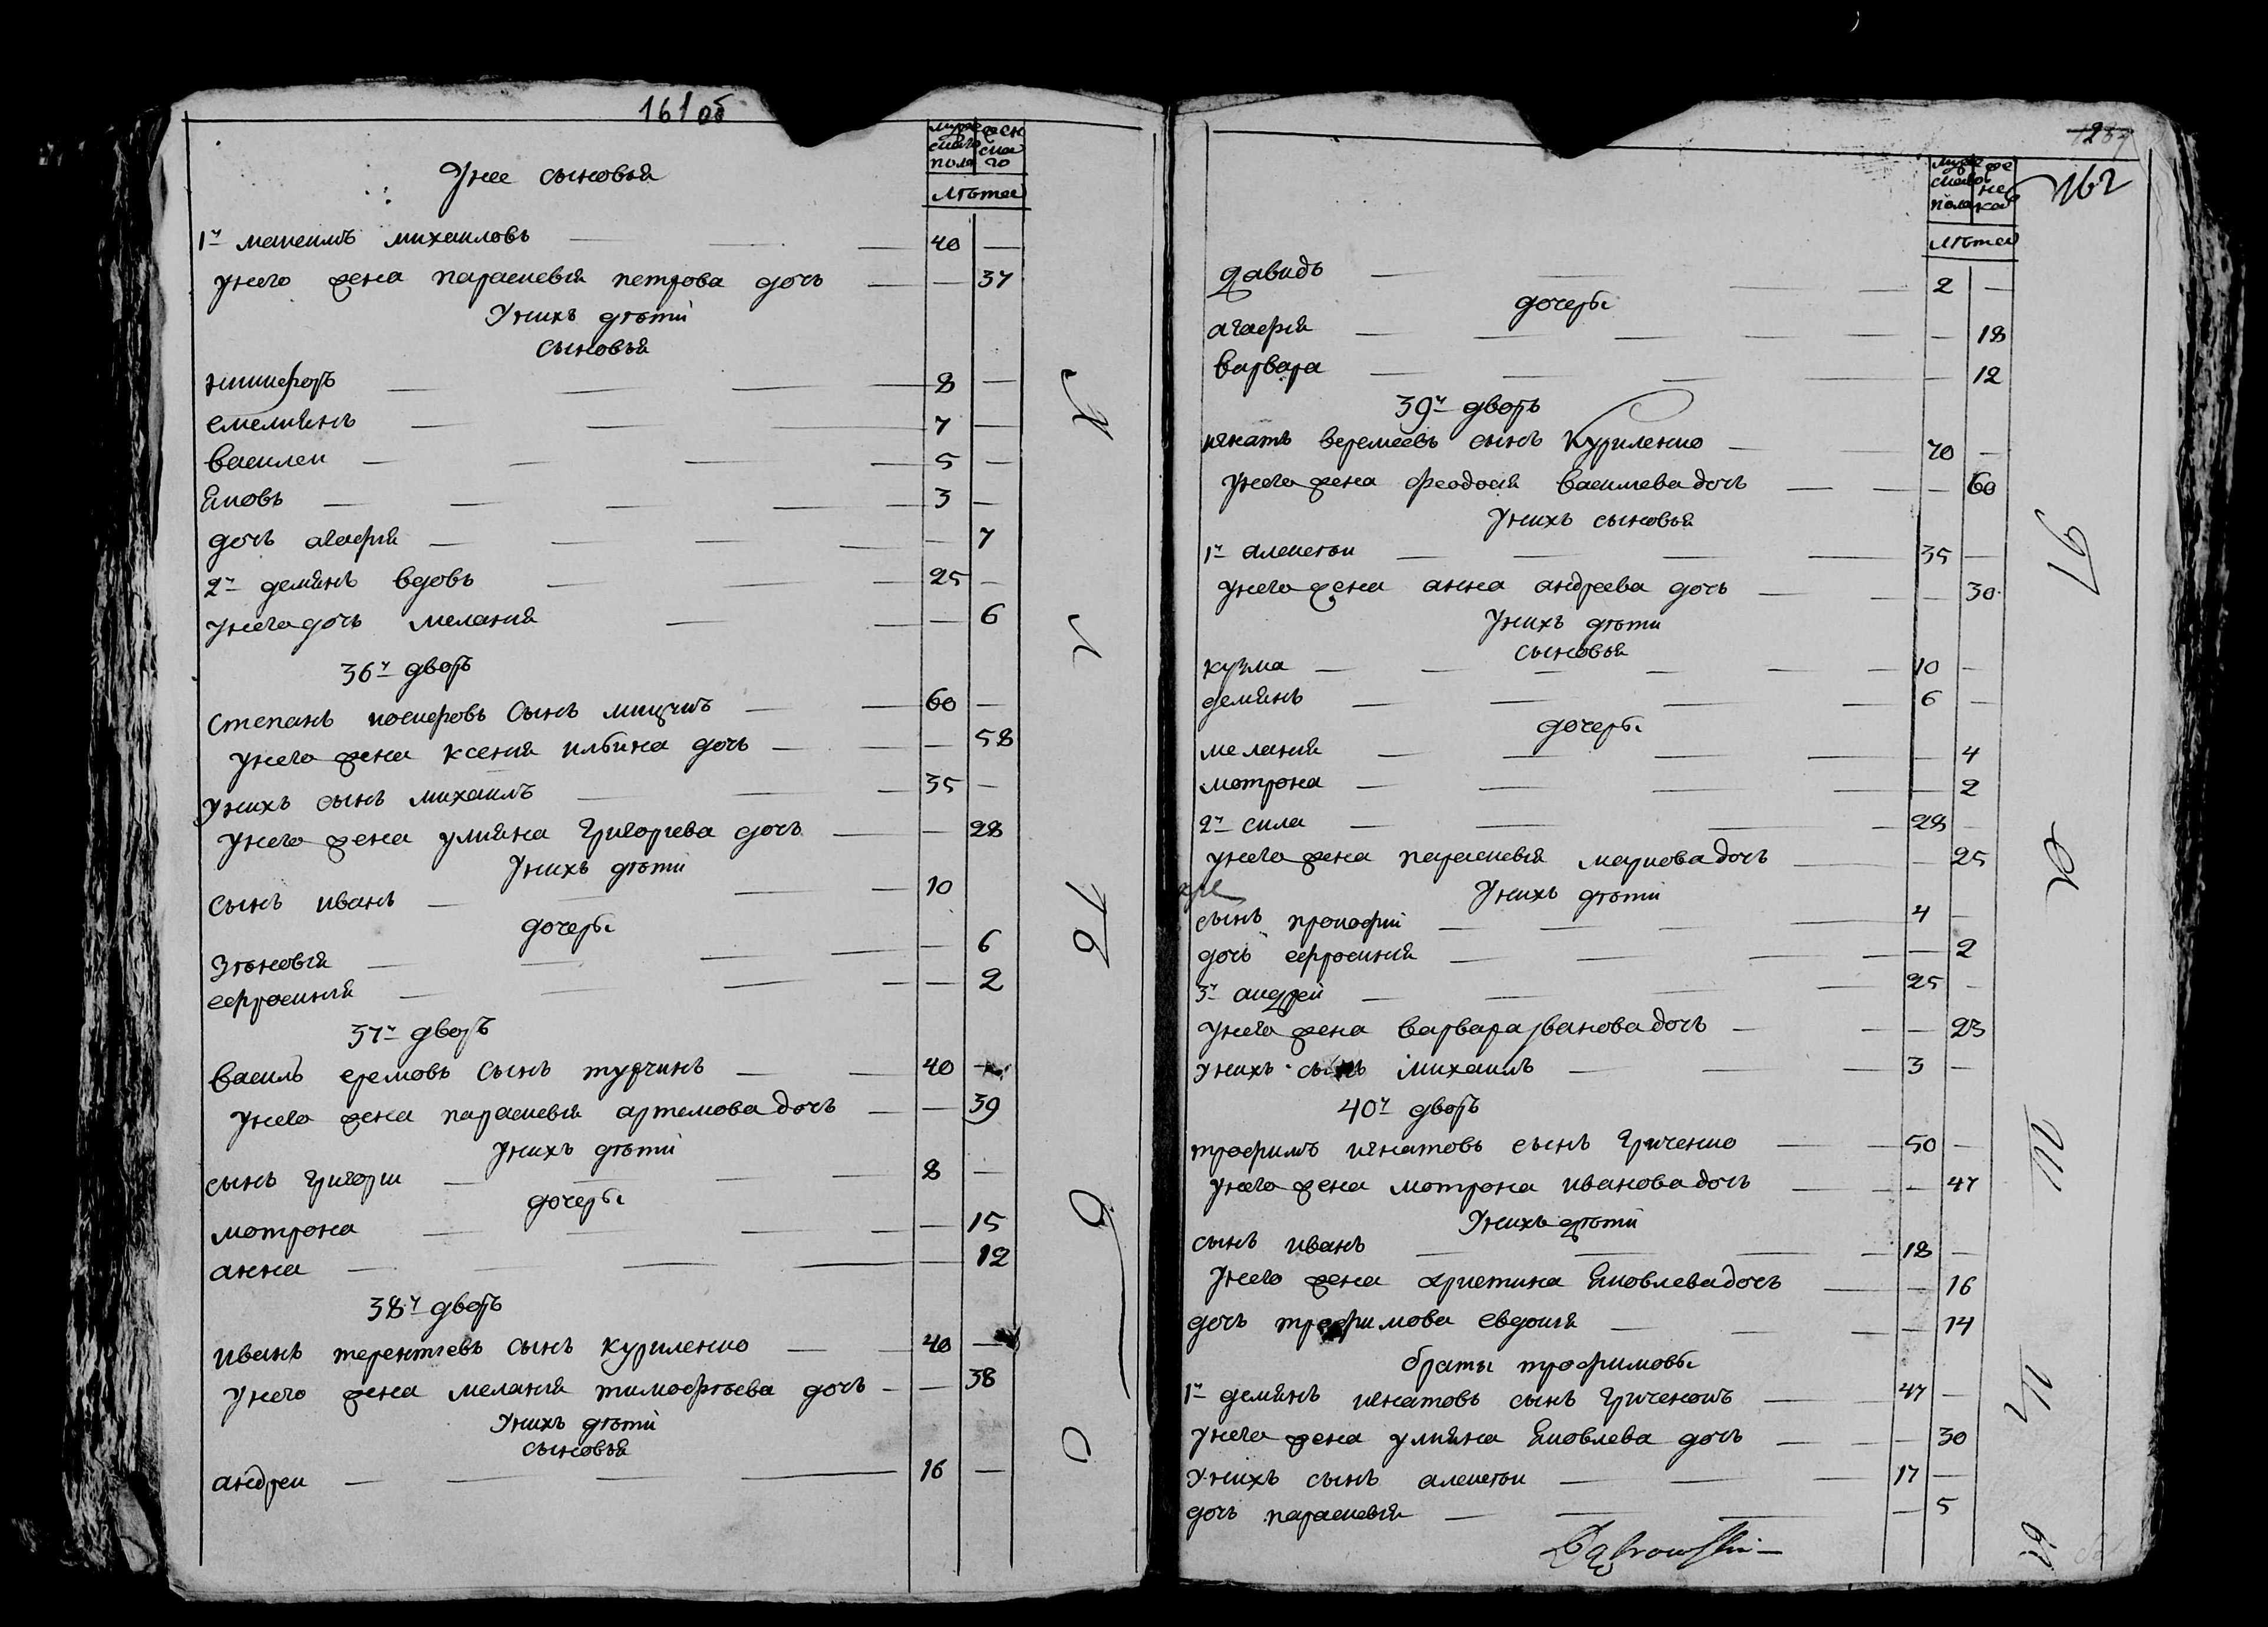 161 об
мужескаго пола
женскаго
лѣта
У нее сыновья
1й максимъ михаиловъ — 40 —
у него жена параскевія петрова дочь — — 37
У нихъ дѣти
сыновья
никифоръ — 8 —
емелиянъ — 7 —
василеи — 5 —
Яковъ — 3 —
дочь агафия — — 7
2й демянъ вдовъ — 25 —
у него дочь мелания — — 6
36й дворъ
Степанъ иосифовъ сынъ — 60 —
у него жена ксения ильина дочь — — 58
у нихъ сынъ михаилъ — 35 —
у него жена улияна григориева дочь — — 28
У нихъ дѣти
сынъ иванъ — 10
дочеры
Зѣновія — — 6
ефросиния — — 2
37й дворъ
василь еремовъ сынъ турчинъ — 40 —
у него жена параскевія артемова дочь — — 39
У нихъ дѣти
сынъ григори — 8 —
дочеры
мотрона — — 15
анна — — 12
38й дворъ
иванъ терентиевъ сынъ куриленко — 40 —
у него жена мелания тимофѣева дочь — — 38
У нихъ дѣти
сыновья
андреи — 16 —
162
лѣта
давидъ — 2 —
дочеры
агафия — — 18
варвара — — 12
39й дворъ
игнатъ веремеевъ сынъ Куриленко — 70 —
у него жена феодосія василиева дочь — — 60
У нихъ сыновья
1й алексѣи — 35 —
у него жена анна андреева дочь — — 30
У нихъ дѣти
сыновья
кузма — 10 —
демянъ — 6 —
дочеры
мелания — — 4
мотрона — — 2
2й сила — 28 —
у него жена параскевія маркова дочь — — 25
У нихъ дѣти
сынъ прокофий — 4 —
дочь ефросиния — — 2
3й андрей — 25 —
у него жена варвара иванова дочь — — 23
у нихъ сынъ михаилъ — 3 —
40й дворъ
трофимъ игнатовъ сынъ Гриченко — 50 —
у него жена мотрона иванова дочь — — 47
У нихъ дѣти
сынъ иванъ — 18 —
у него жена христина Яковлева дочь — — 16
дочь трофимова евдокия — — 14
браты трофимовы
1й демянъ игнатовъ сынъ — 47 —
у него жена улияна Яковлева дочь — — 30
у нихъ сынъ алексѣи — 17 —
дочь параскевія — — 5
Dąbrowski